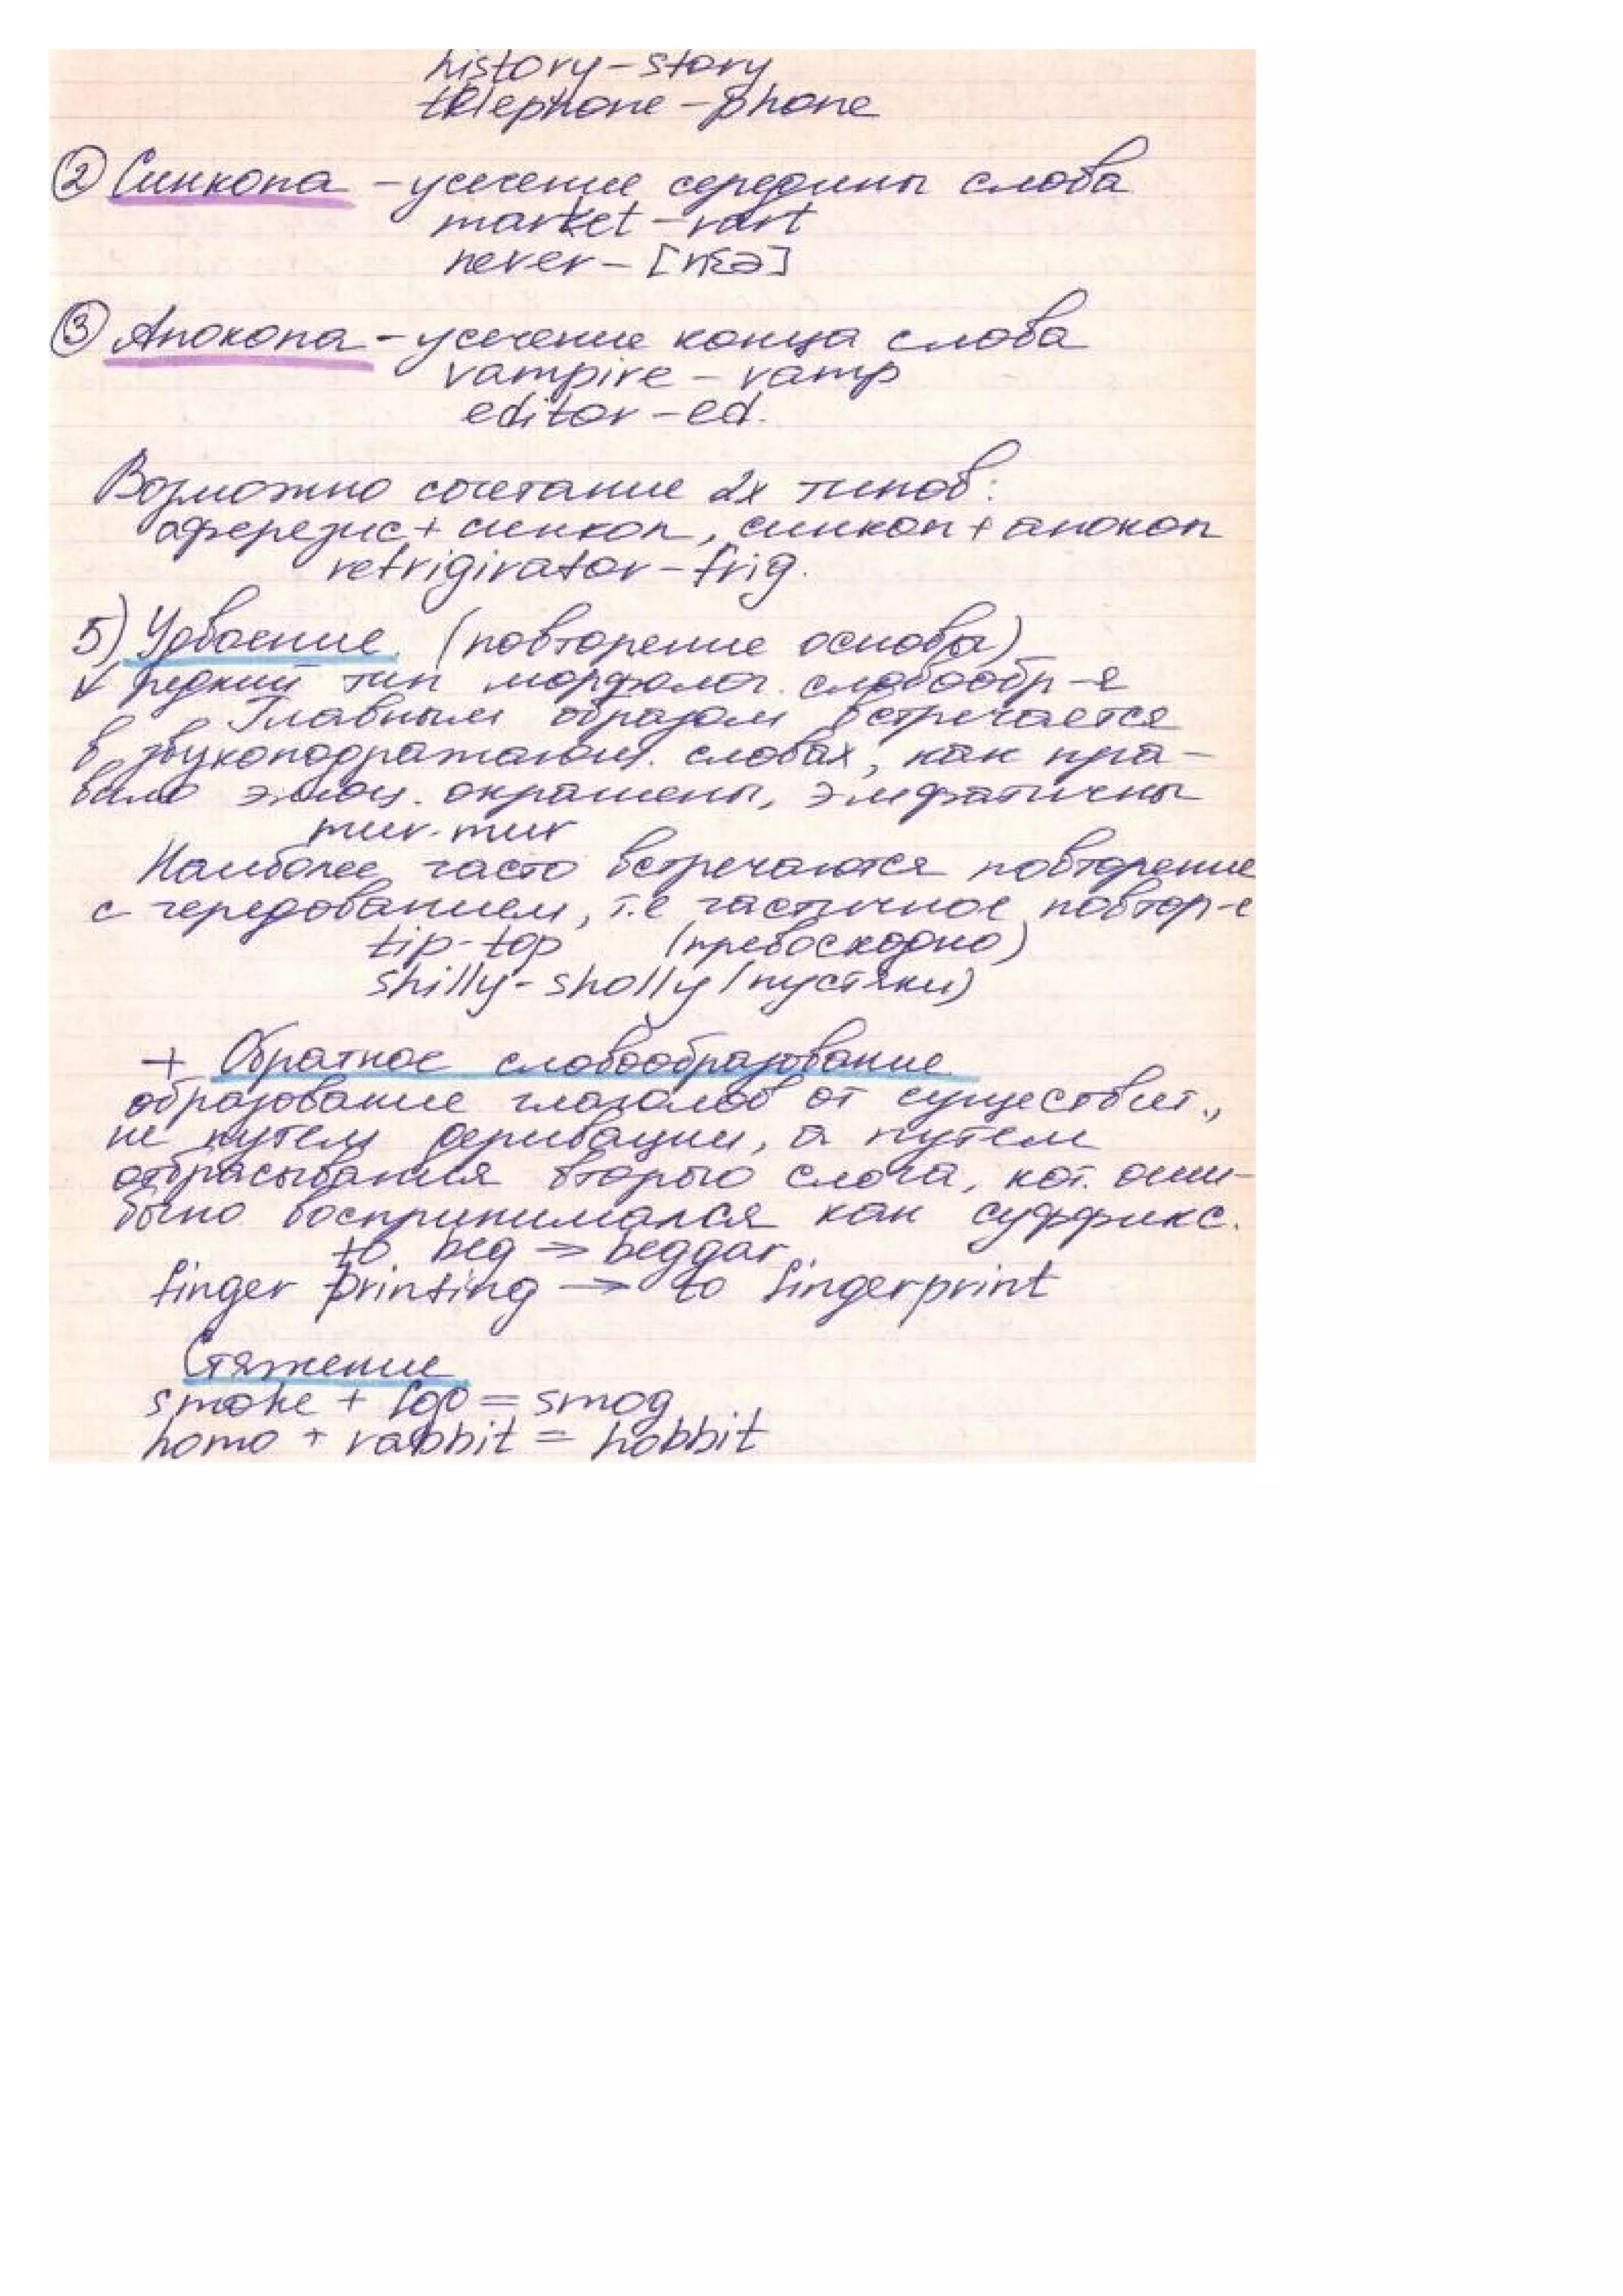 history – story
telephone – phone
② Синкопа – усечение середины слова
market – mart
never – [nɛə]
③ Апокопа – усечение конца слова
vampire – vamp
editor – ed.
Возможно сочетание 2х типов:
аферезис + синкоп, синкоп + апокоп
refrigirator – frig.
5) Удвоение (повторение основы)
редкий тип морфолог. словообр-я
Главным образом встречается
в звукоподражающ. словах, как пра-
вило эмоц. окрашены, эмфатичны
mur-mur
Наиболее часто встречаются повторение
с чередованием, т.е частичное повтор-е
tip-top (превосходно)
shilly-sholly (пустяки)
+ Обратное словообразование
образование глаголов от существит.,
не путем деривации, а путем
отбрасывания второго слога, кот. оши-
бочно воспринимался как суффикс.
to beg => beggar
finger printing –> to fingerprint
Стяжение
smoke + fog = smog
homo + rabbit = hobbit